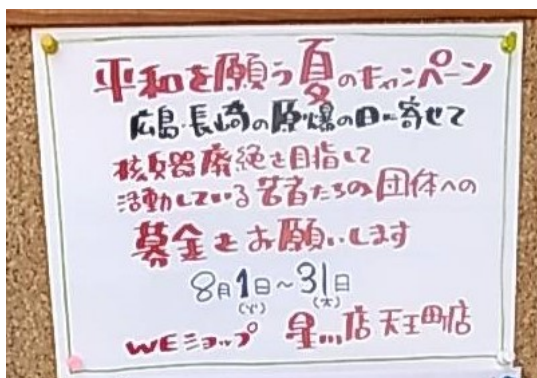 平和を願う夏のキャンペーン
広島・長崎の原爆の日に寄せて
核兵器廃絶を目指して
活動している若者たちの団体への
募金をお願いします
8月1日~31日
(火) (木)
WEショップ 星川店 天王町店